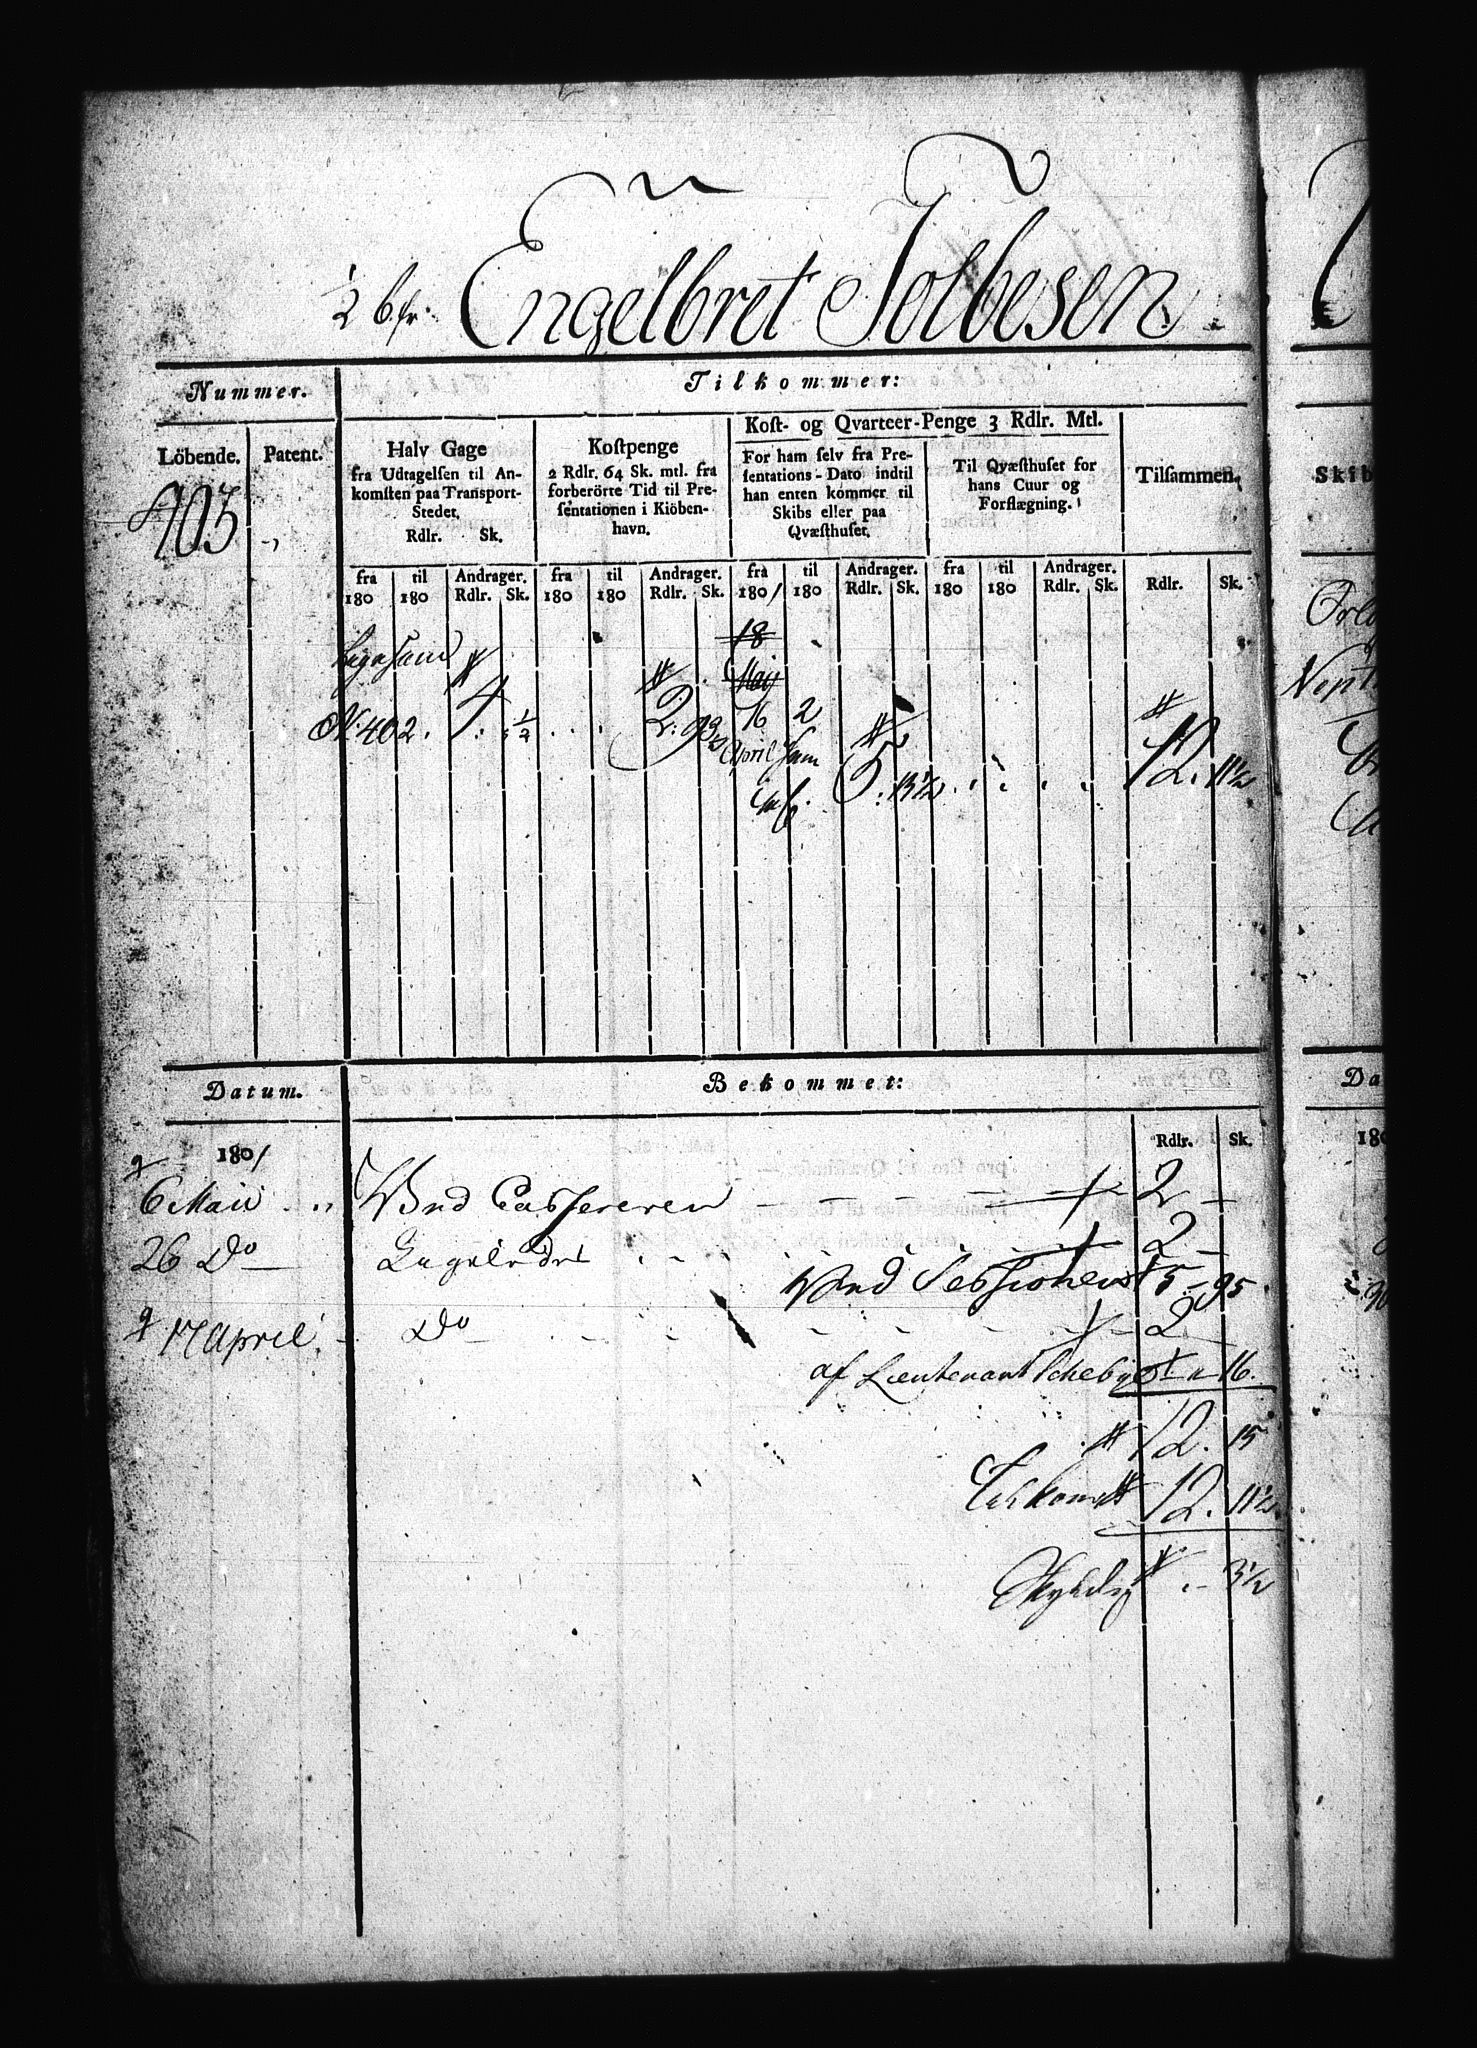 1/2 bfr. Engelbret Tolbesen
Nummer.
Tilkommer:
Löbende.
Patent.
Halv Gage
fra Udtagelsen til An-
komsten paa Transport-
Stedet.
Rdlr. Sk.
Kostpenge
2 Rdlr. 64 Sk. mtl. fra
forberörte Tid til Pre-
sentationen i Kiöben-
havn.
Kost- og Qvarteer-Penge 3 Rdlr. Mtl.
For ham selv fra Pre-
sentations-Dato indtil
han enten kommer til
Skibs eller paa
Qvæsthuset.
Til Qvæsthuset for
hans Cuur og
Forflægning.
Tilsammen.
403
fra 180 til 180 Andrager. Rdlr. Sk.
fra 180 til 180 Andrager. Rdlr. Sk.
fra 1801 til 180 Andrager. Rdlr. Sk.
fra 180 til 180 Andrager. Rdlr. Sk.
Rdlr. Sk.
Ligesaa
18
Maij
No. 402. 4. 1/2 2. 93 16 2
April
5. 13 1/2 12. 11 1/2
Datum.
Bekommet:
1801
Rdlr. Sk.
6 Maii Wed Cassereren 2
26 Do Ligeledes 2
Wed Sessionen 5 95
17 April Do 2
af Lieutenant 16
12. 15
Tilkom 12. 11 1/2
Skyldig 3 1/2
Skib
Da
180